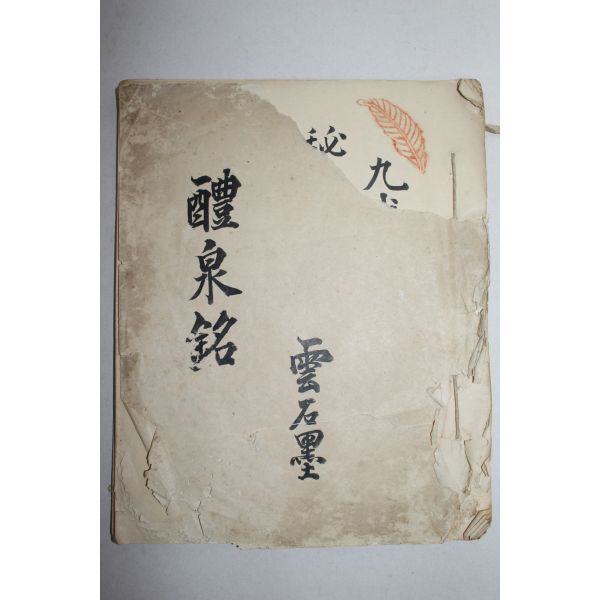 醴泉銘
雲石墨
九
秘